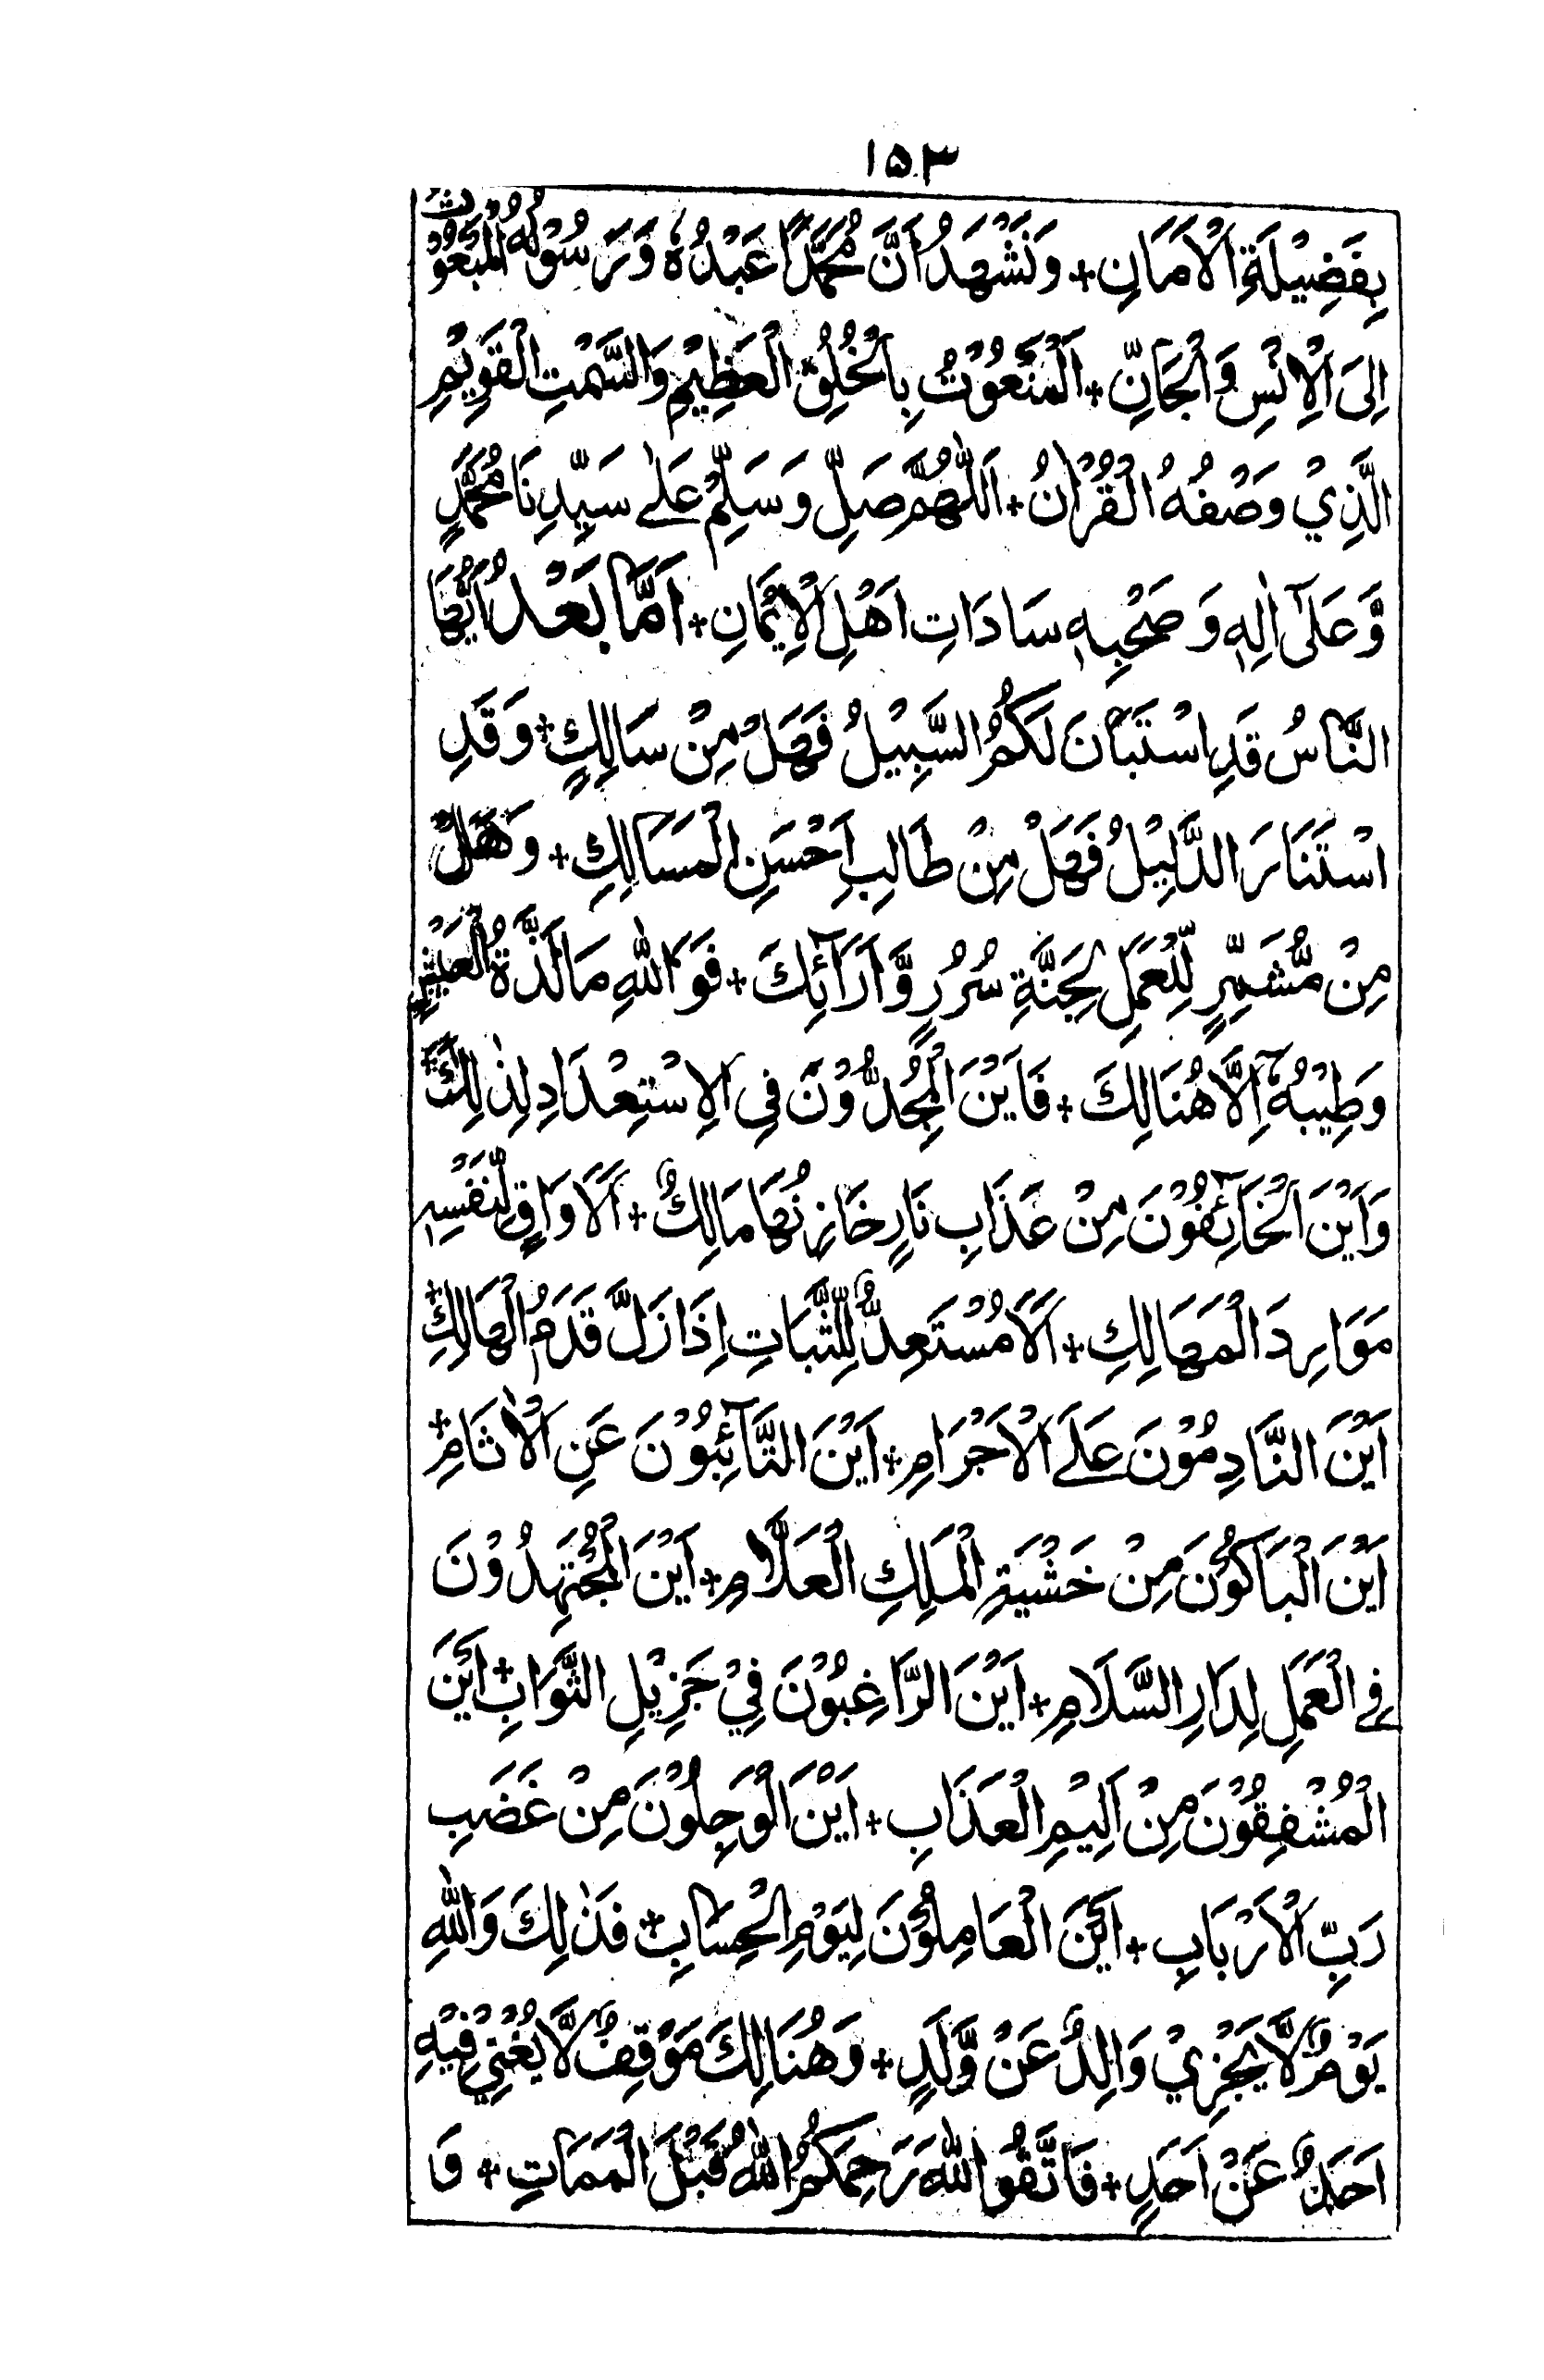 ١٥٣
بِفَضِيْلَةِ الْاَمَانِ + وَنَشْهَدُ اَنَّ مُحَمَّدًا عَبْدُهٗ وَرَسُوْلُهُ الْمَبْعُوْثُ
اِلَى الْاِنْسِ وَالْجَانِّ + اَلْمَنْعُوْتُ بِالْخُلُقِ الْعَظِيْمِ وَالسَّمْتِ الْقَوِيْمِ
الَّذِيْ وَصْفُهُ الْقُرْاٰنُ + اَللّٰهُمَّ صَلِّ وَسَلِّمْ عَلٰے سَيِّدِنَا مُحَمَّدٍ
وَّعَلٰٓى اٰلِهٖ وَصَحْبِهٖ سَادَاتِ اَهْلِ الْاِيْمَانِ + اَمَّا بَعْدُ اَيُّهَا
النَّاسُ قَدِ اسْتَبَانَ لَكُمُ السَّبِيْلُ فَهَلْ مِنْ سَالِكٍ + وَقَدِ
اسْتَنَارَ الدَّلِيْلُ فَهَلْ مِنْ طَالِبِ اَحْسَنِ الْمَسَالِكِ + وَهَلْ
مِنْ مُّشَمِّرٍ لِّلْعَمَلِ لِجَنَّةِ سُرُرٍ وَّاَرَآئِكَ + فَوَاللّٰهِ مَا لَذَّةُ الْعَيْشِ
وَطِيْبُهٗٓ اِلَّا هُنَالِكَ + فَاَيْنَ الْمُجِدُّوْنَ فِى الْاِسْتِعْدَادِ لِذٰلِكَ +
وَاَيْنَ الْخَآئِفُوْنَ مِنْ عَذَابِ نَارٍ خَازِنُهَا مَالِكٌ + اَلَا وَاقٍ لِّنَفْسِهٖ
مَوَارِدَ الْمَهَالِكِ + اَلَا مُسْتَعِدٌّ لِلثَّبَاتِ اِذَا زَلَّ قَدَمُ الْهَالِكِ +
اَيْنَ النَّادِمُوْنَ عَلَے الْاَجْرَامِ + اَيْنَ التَّآئِبُوْنَ عَنِ الْاٰثَامِ +
اَيْنَ الْبَاكُوْنَ مِنْ خَشْيَةِ الْمَلِكِ الْعَلَّامِ + اَيْنَ الْمُجْتَهِدُوْنَ
فِے الْعَمَلِ لِدَارِ السَّلَامِ + اَيْنَ الرَّاغِبُوْنَ فِيْ جَزِيْلِ الثَّوَابِ + اَيْنَ
الْمُشْفِقُوْنَ مِنْ اَلِيْمِ الْعَذَابِ + اَيْنَ الْوَجِلُوْنَ مِنْ غَضَبِ
رَبِّ الْاَرْبَابِ + اَيْنَ الْعَامِلُوْنَ لِيَوْمِ الْحِسَابِ + فَذٰلِكَ وَاللّٰهِ
يَوْمٌ لَّا يَجْزِيْ وَالِدٌ عَنْ وَّلَدٍ + وَهُنَالِكَ مَوْقِفٌ لَّا يُغْنِيْ فِيْهِ
اَحَدٌ عَنْ اَحَدٍ + فَاتَّقُوا اللّٰهَ رَحِمَكُمُ اللّٰهُ قَبْلَ الْمَمَاتِ + وَ